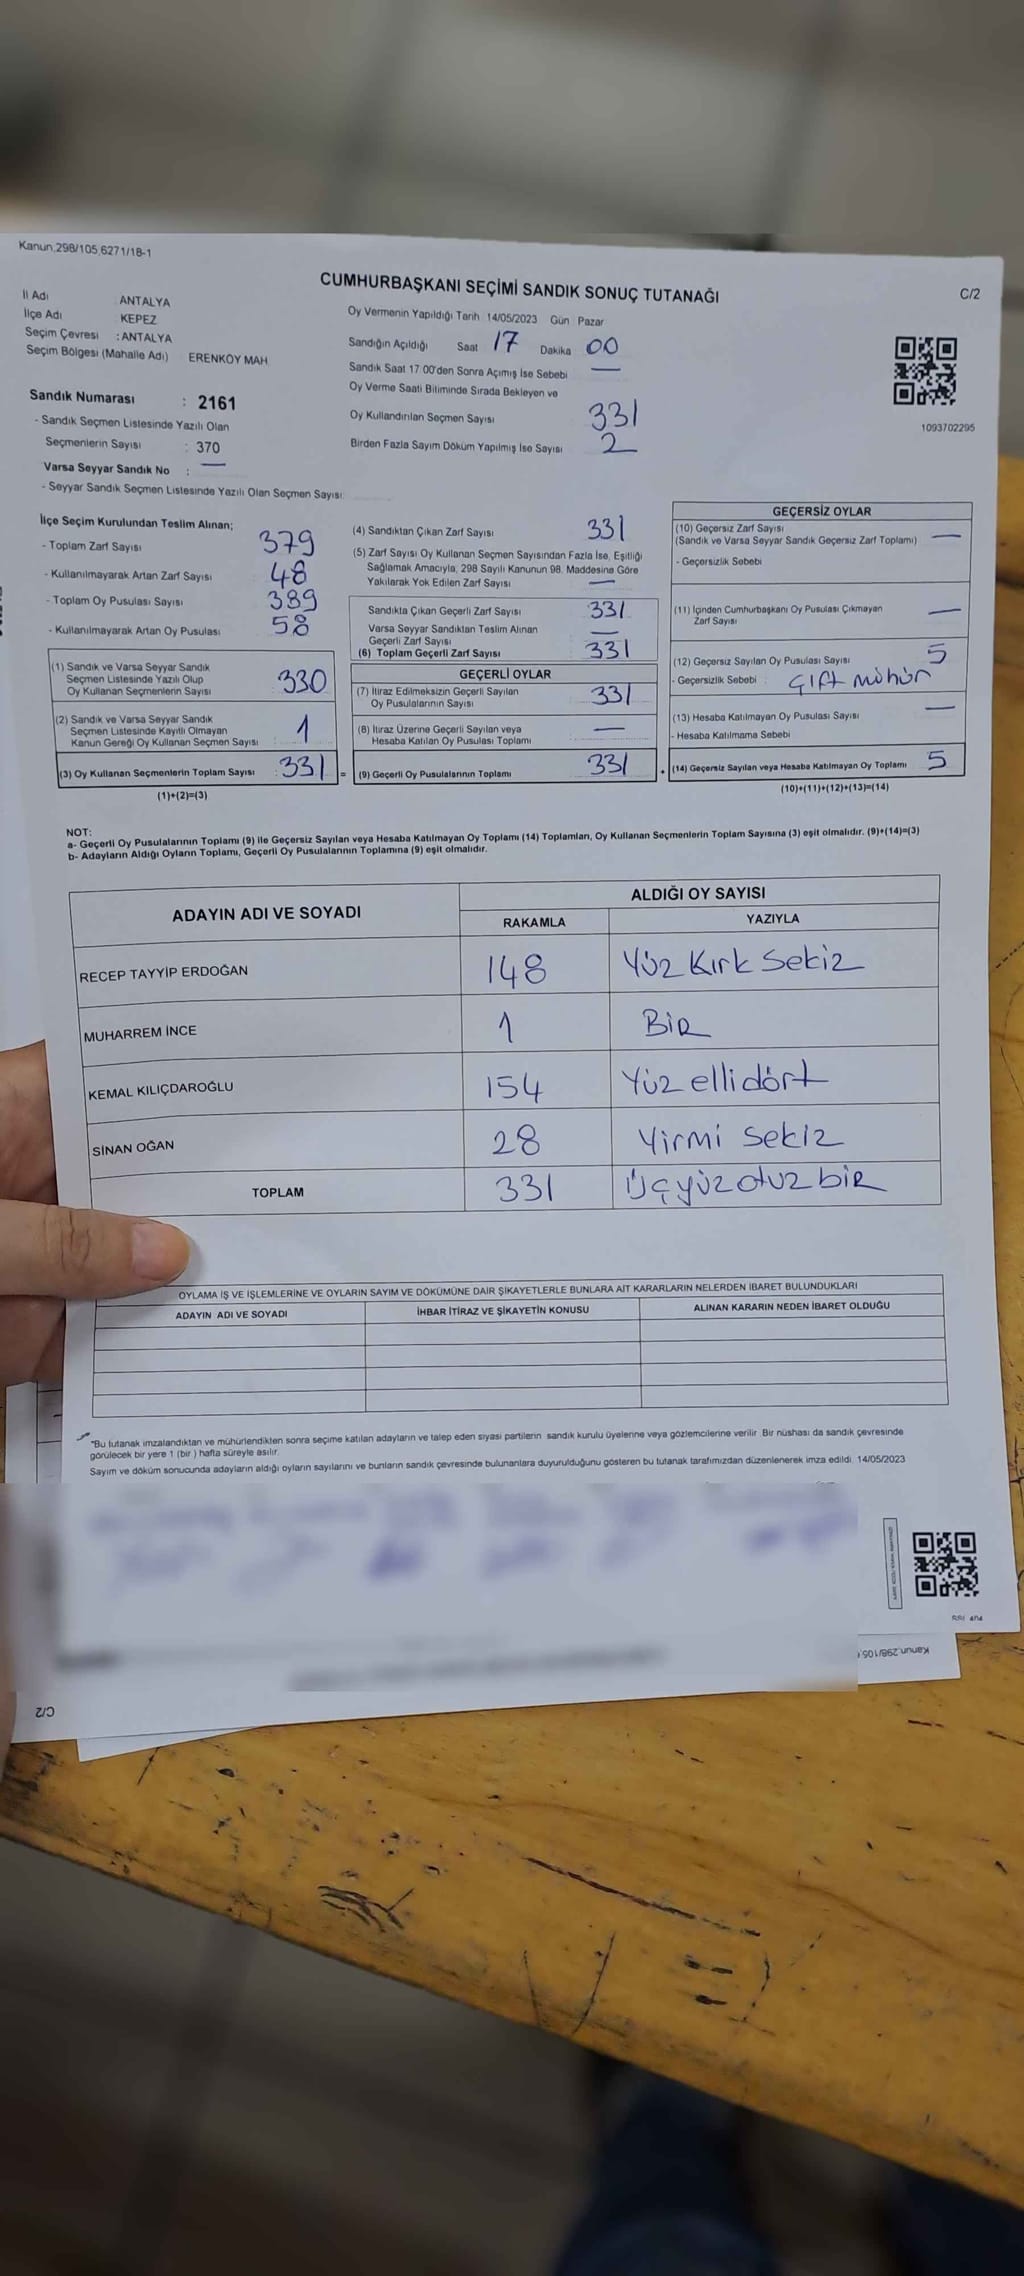 Kanun,298/105,6271/18-1
CUMHURBAŞKANI SEÇİMİ SANDIK SONUÇ TUTANAĞI
C/2
İl Adı : ANTALYA
İlçe Adı : KEPEZ
Seçim Çevresi : ANTALYA
Seçim Bölgesi (Mahalle Adı) ERENKÖY MAH
Sandık Numarası : 2161
- Sandık Seçmen Listesinde Yazılı Olan
Seçmenlerin Sayısı : 370
Varsa Seyyar Sandık No : —
- Seyyar Sandık Seçmen Listesinde Yazılı Olan Seçmen Sayısı:
Oy Vermenin Yapıldığı Tarih : 14/05/2023 Gün : Pazar
Sandığın Açıldığı Saat 17 Dakika 00
Sandık Saat 17:00'den Sonra Açımış İse Sebebi —
Oy Verme Saati Bitiminde Sırada Bekleyen ve
Oy Kullandırılan Seçmen Sayısı 331
Birden Fazla Sayım Döküm Yapılmış İse Sayısı 2
1093702295
İlçe Seçim Kurulundan Teslim Alınan;
- Toplam Zarf Sayısı 379
- Kullanılmayarak Artan Zarf Sayısı 48
- Toplam Oy Pusulası Sayısı 389
- Kullanılmayarak Artan Oy Pusulası 58
(1) Sandık ve Varsa Seyyar Sandık
Seçmen Listesinde Yazılı Olup
Oy Kullanan Seçmenlerin Sayısı 330
(2) Sandık ve Varsa Seyyar Sandık
Seçmen Listesinde Kayıtlı Olmayan
Kanun Gereği Oy Kullanan Seçmen Sayısı 1
(3) Oy Kullanan Seçmenlerin Toplam Sayısı : 331 =
(1)+(2)=(3)
(4) Sandıktan Çıkan Zarf Sayısı 331
(5) Zarf Sayısı Oy Kullanan Seçmen Sayısından Fazla İse, Eşitliği
Sağlamak Amacıyla, 298 Sayılı Kanunun 98. Maddesine Göre
Yakılarak Yok Edilen Zarf Sayısı —
Sandıkta Çıkan Geçerli Zarf Sayısı 331
Varsa Seyyar Sandıktan Teslim Alınan
Geçerli Zarf Sayısı —
(6) Toplam Geçerli Zarf Sayısı 331
GEÇERLİ OYLAR
(7) İtiraz Edilmeksizin Geçerli Sayılan
Oy Pusulalarının Sayısı 331
(8) İtiraz Üzerine Geçerli Sayılan veya
Hesaba Katılan Oy Pusulası Toplamı —
(9) Geçerli Oy Pusulalarının Toplamı 331 +
GEÇERSİZ OYLAR
(10) Geçersiz Zarf Sayısı
(Sandık ve Varsa Seyyar Sandık Geçersiz Zarf Toplamı) —
- Geçersizlik Sebebi
(11) İçinden Cumhurbaşkanı Oy Pusulası Çıkmayan
Zarf Sayısı —
(12) Geçersiz Sayılan Oy Pusulası Sayısı 5
- Geçersizlik Sebebi : çift mühür
(13) Hesaba Katılmayan Oy Pusulası Sayısı —
- Hesaba Katılmama Sebebi
(14) Geçersiz Sayılan veya Hesaba Katılmayan Oy Toplamı 5
(10)+(11)+(12)+(13)=(14)
NOT:
a- Geçerli Oy Pusulalarının Toplamı (9) ile Geçersiz Sayılan veya Hesaba Katılmayan Oy Toplamı (14) Toplamları, Oy Kullanan Seçmenlerin Toplam Sayısına (3) eşit olmalıdır. (9)+(14)=(3)
b- Adayların Aldığı Oyların Toplamı, Geçerli Oy Pusulalarının Toplamına (9) eşit olmalıdır.
ADAYIN ADI VE SOYADI ALDIĞI OY SAYISI
RAKAMLA YAZIYLA
RECEP TAYYİP ERDOĞAN 148 Yüz Kırk Sekiz
MUHARREM İNCE 1 BİR
KEMAL KILIÇDAROĞLU 154 Yüz ellidört
SİNAN OĞAN 28 Yirmi Sekiz
TOPLAM 331 Üçyüzotuzbir
OYLAMA İŞ VE İŞLEMLERİNE VE OYLARIN SAYIM VE DÖKÜMÜNE DAİR ŞİKAYETLERLE BUNLARA AİT KARARLARIN NELERDEN İBARET BULUNDUKLARI
ADAYIN ADI VE SOYADI İHBAR İTİRAZ VE ŞİKAYETİN KONUSU ALINAN KARARIN NEDEN İBARET OLDUĞU
*Bu tutanak imzalandıktan ve mühürlendikten sonra seçime katılan adayların ve talep eden siyasi partilerin sandık kurulu üyelerine veya gözlemcilerine verilir. Bir nüshası da sandık çevresinde
görülecek bir yere 1 (bir ) hafta süreyle asılır.
Sayım ve döküm sonucunda adayların aldığı oyların sayılarını ve bunların sandık çevresinde bulunanlara duyurulduğunu gösteren bu tutanak tarafımızdan düzenlenerek imza edildi. 14/05/2023
Kanun,298/105,
C/2